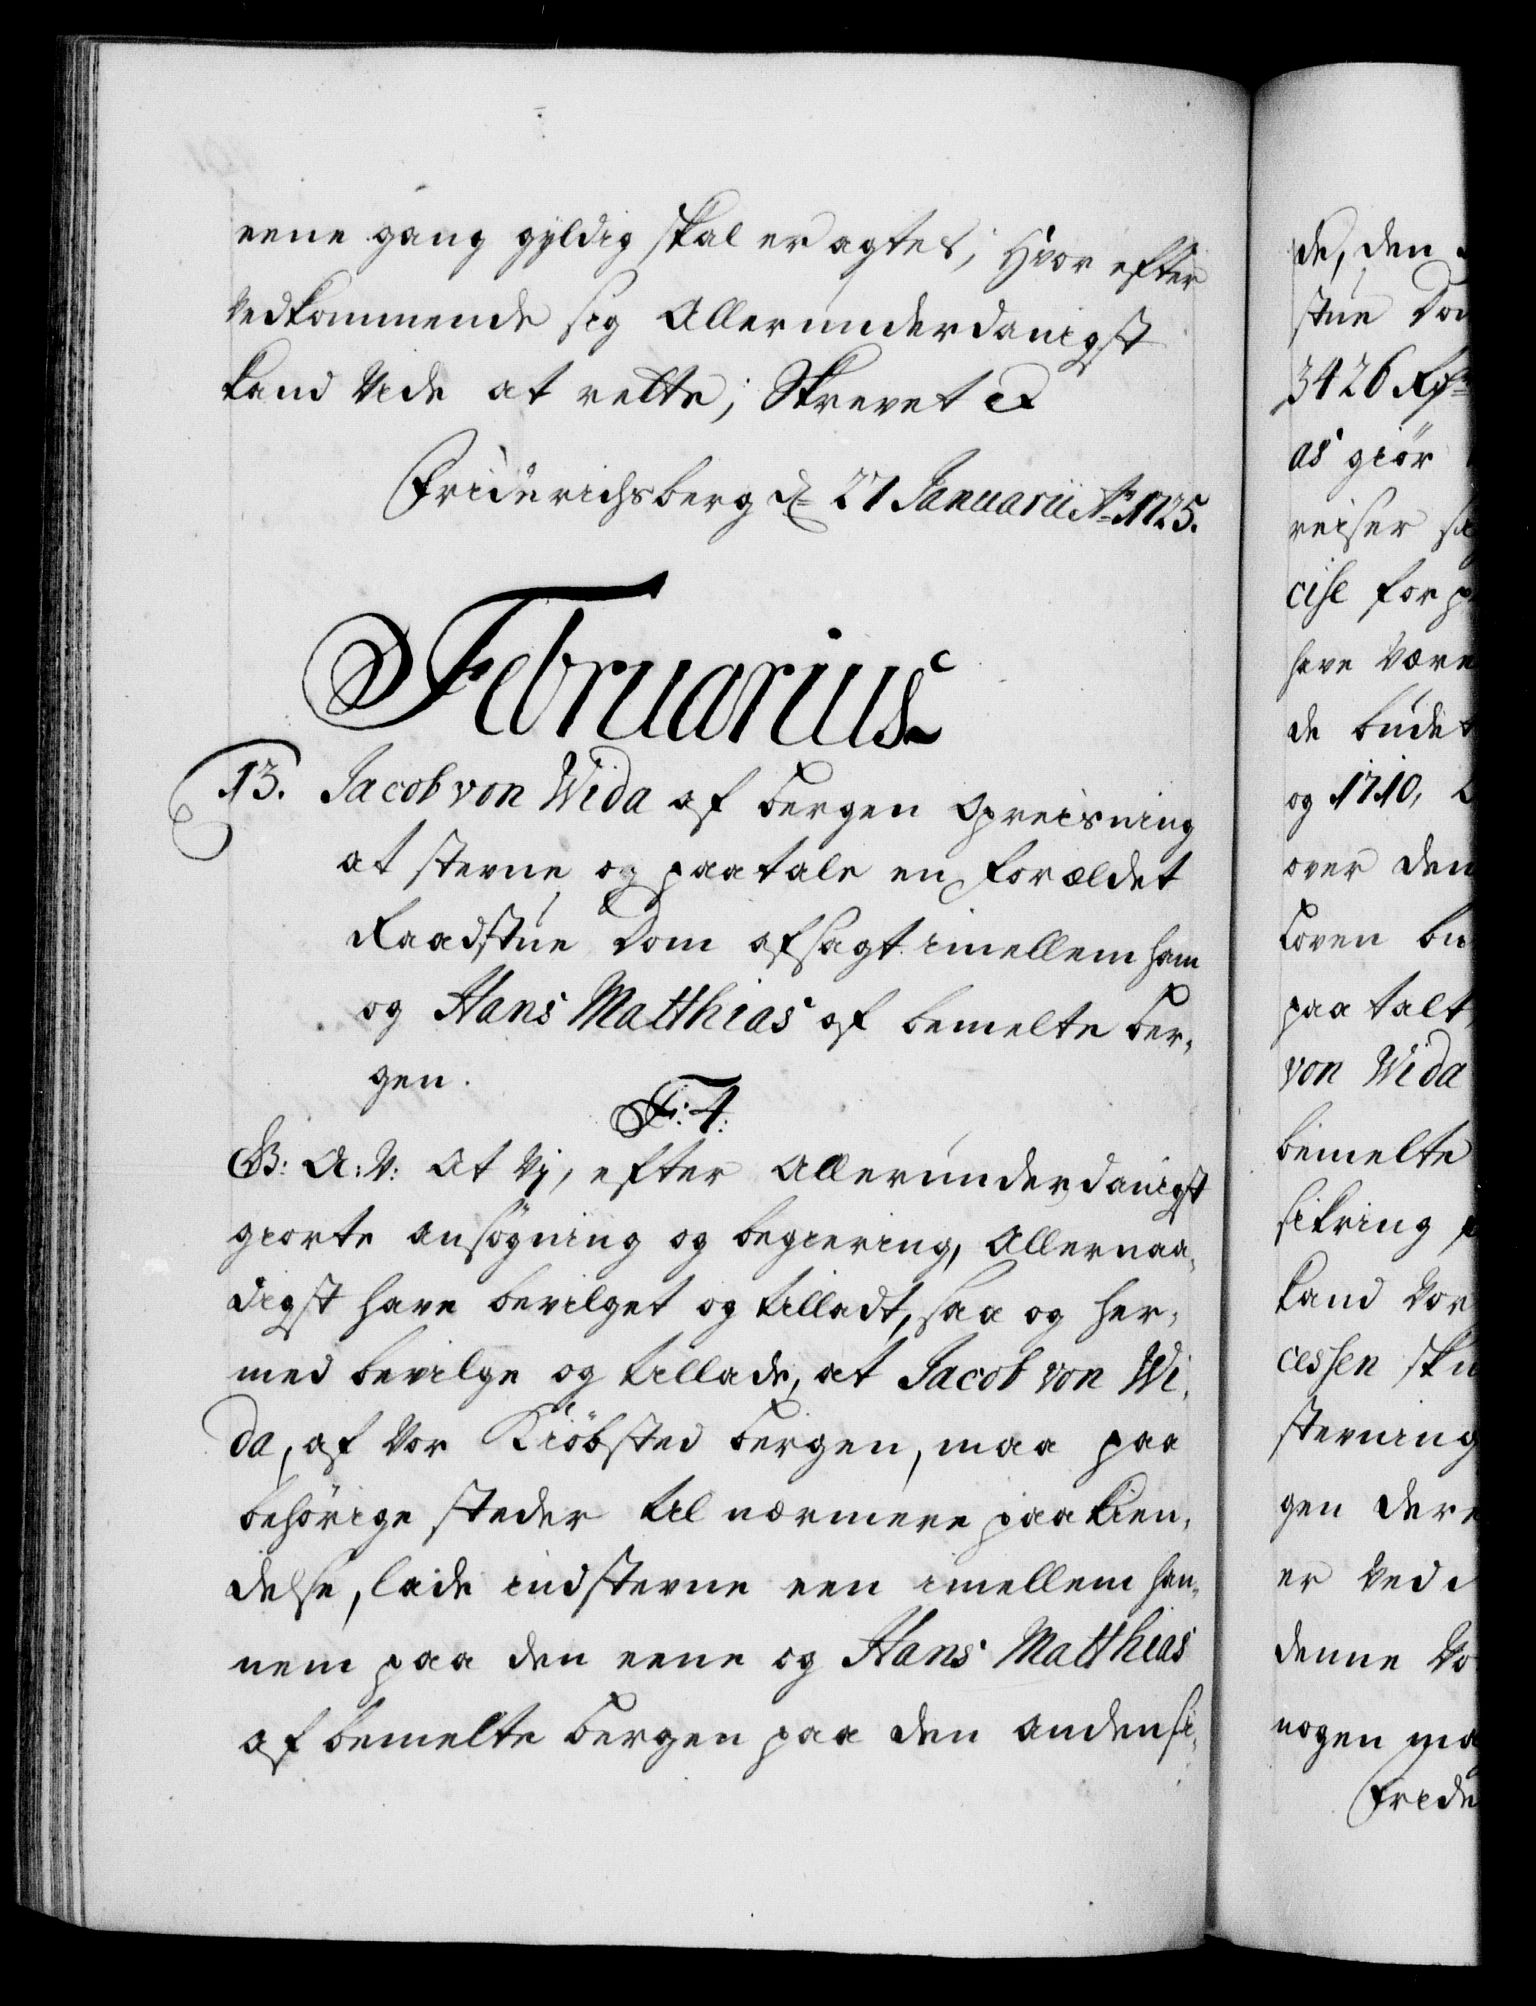 eene gang gyldig skal er agtes, Hvor efter
Vedkommende sig Allerunderdanigst
kand vide at rette; Skrevet &
Friderichsberg d. 27 Januarii Ao 1725.
Februarius
13. Jacob von Wida af Bergen Opreisning
at stevne og paatale en forældet
Raadstue Dom afsagt imellem ham
og Hans Matthias af bemelte Ber,
gen.
F: 4:
G: A: V: At Vj, efter Allerunderdanigst
giorte ansögning og begiering, Allernaa,
digst have bevilget og tilladt, saa og her,
med bevilge og tillade, at Jacob von Wi,
da, af Vor Kiöbsted Bergen, maa paa
behörige steder til nærmere paakien,
delse, lade indstevne een imellem han,
nem paa den eene og Hans Matthias
af bemelte Bergen paa den anden si,
de, den
stue Dom
3426 Rdr
as giör
reiser
cise for
have være
de budet
og 1710,
over den
Loven
paatalt
von Wida
bemelte
sikring
kand Vor
cessen
stevning
gen der
er Ved
denne Vo
nogen
Fride